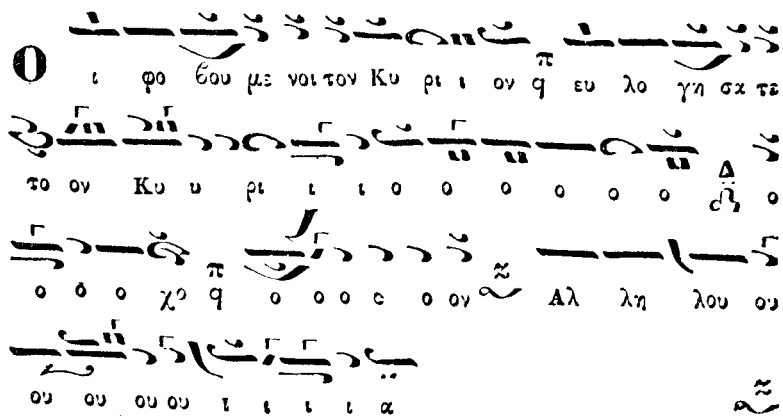 Οι φο βου με νοι τον Κυ ρι ι ον π q ευ λο γη σα τε
το ον Κυ υ ρι ι ι ο ο ο ο ο ο Δ ο
ο ο ο χο π q ο ο ο ο ο ον Αλ λη λου ου
ου ου ου ου ι ι ι ι α